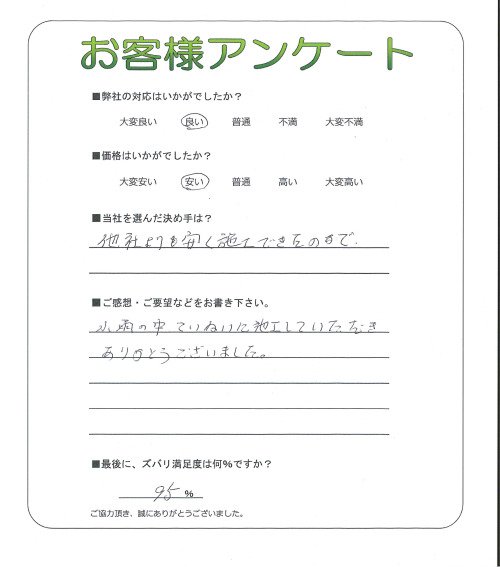 お客様アンケート
■弊社の対応はいかがでしたか？
大変良い 良い 普通 不満 大変不満
■価格はいかがでしたか？
大変安い 安い 普通 高い 大変高い
■当社を選んだ決め手は？
他社よりも安く施工できたので.
■ご感想・ご要望などをお書き下さい。
小雨の中ていねいに施工していただき
ありがとうございました。
■最後に、ズバリ満足度は何%ですか？
95 %
ご協力頂き、誠にありがとうございました。